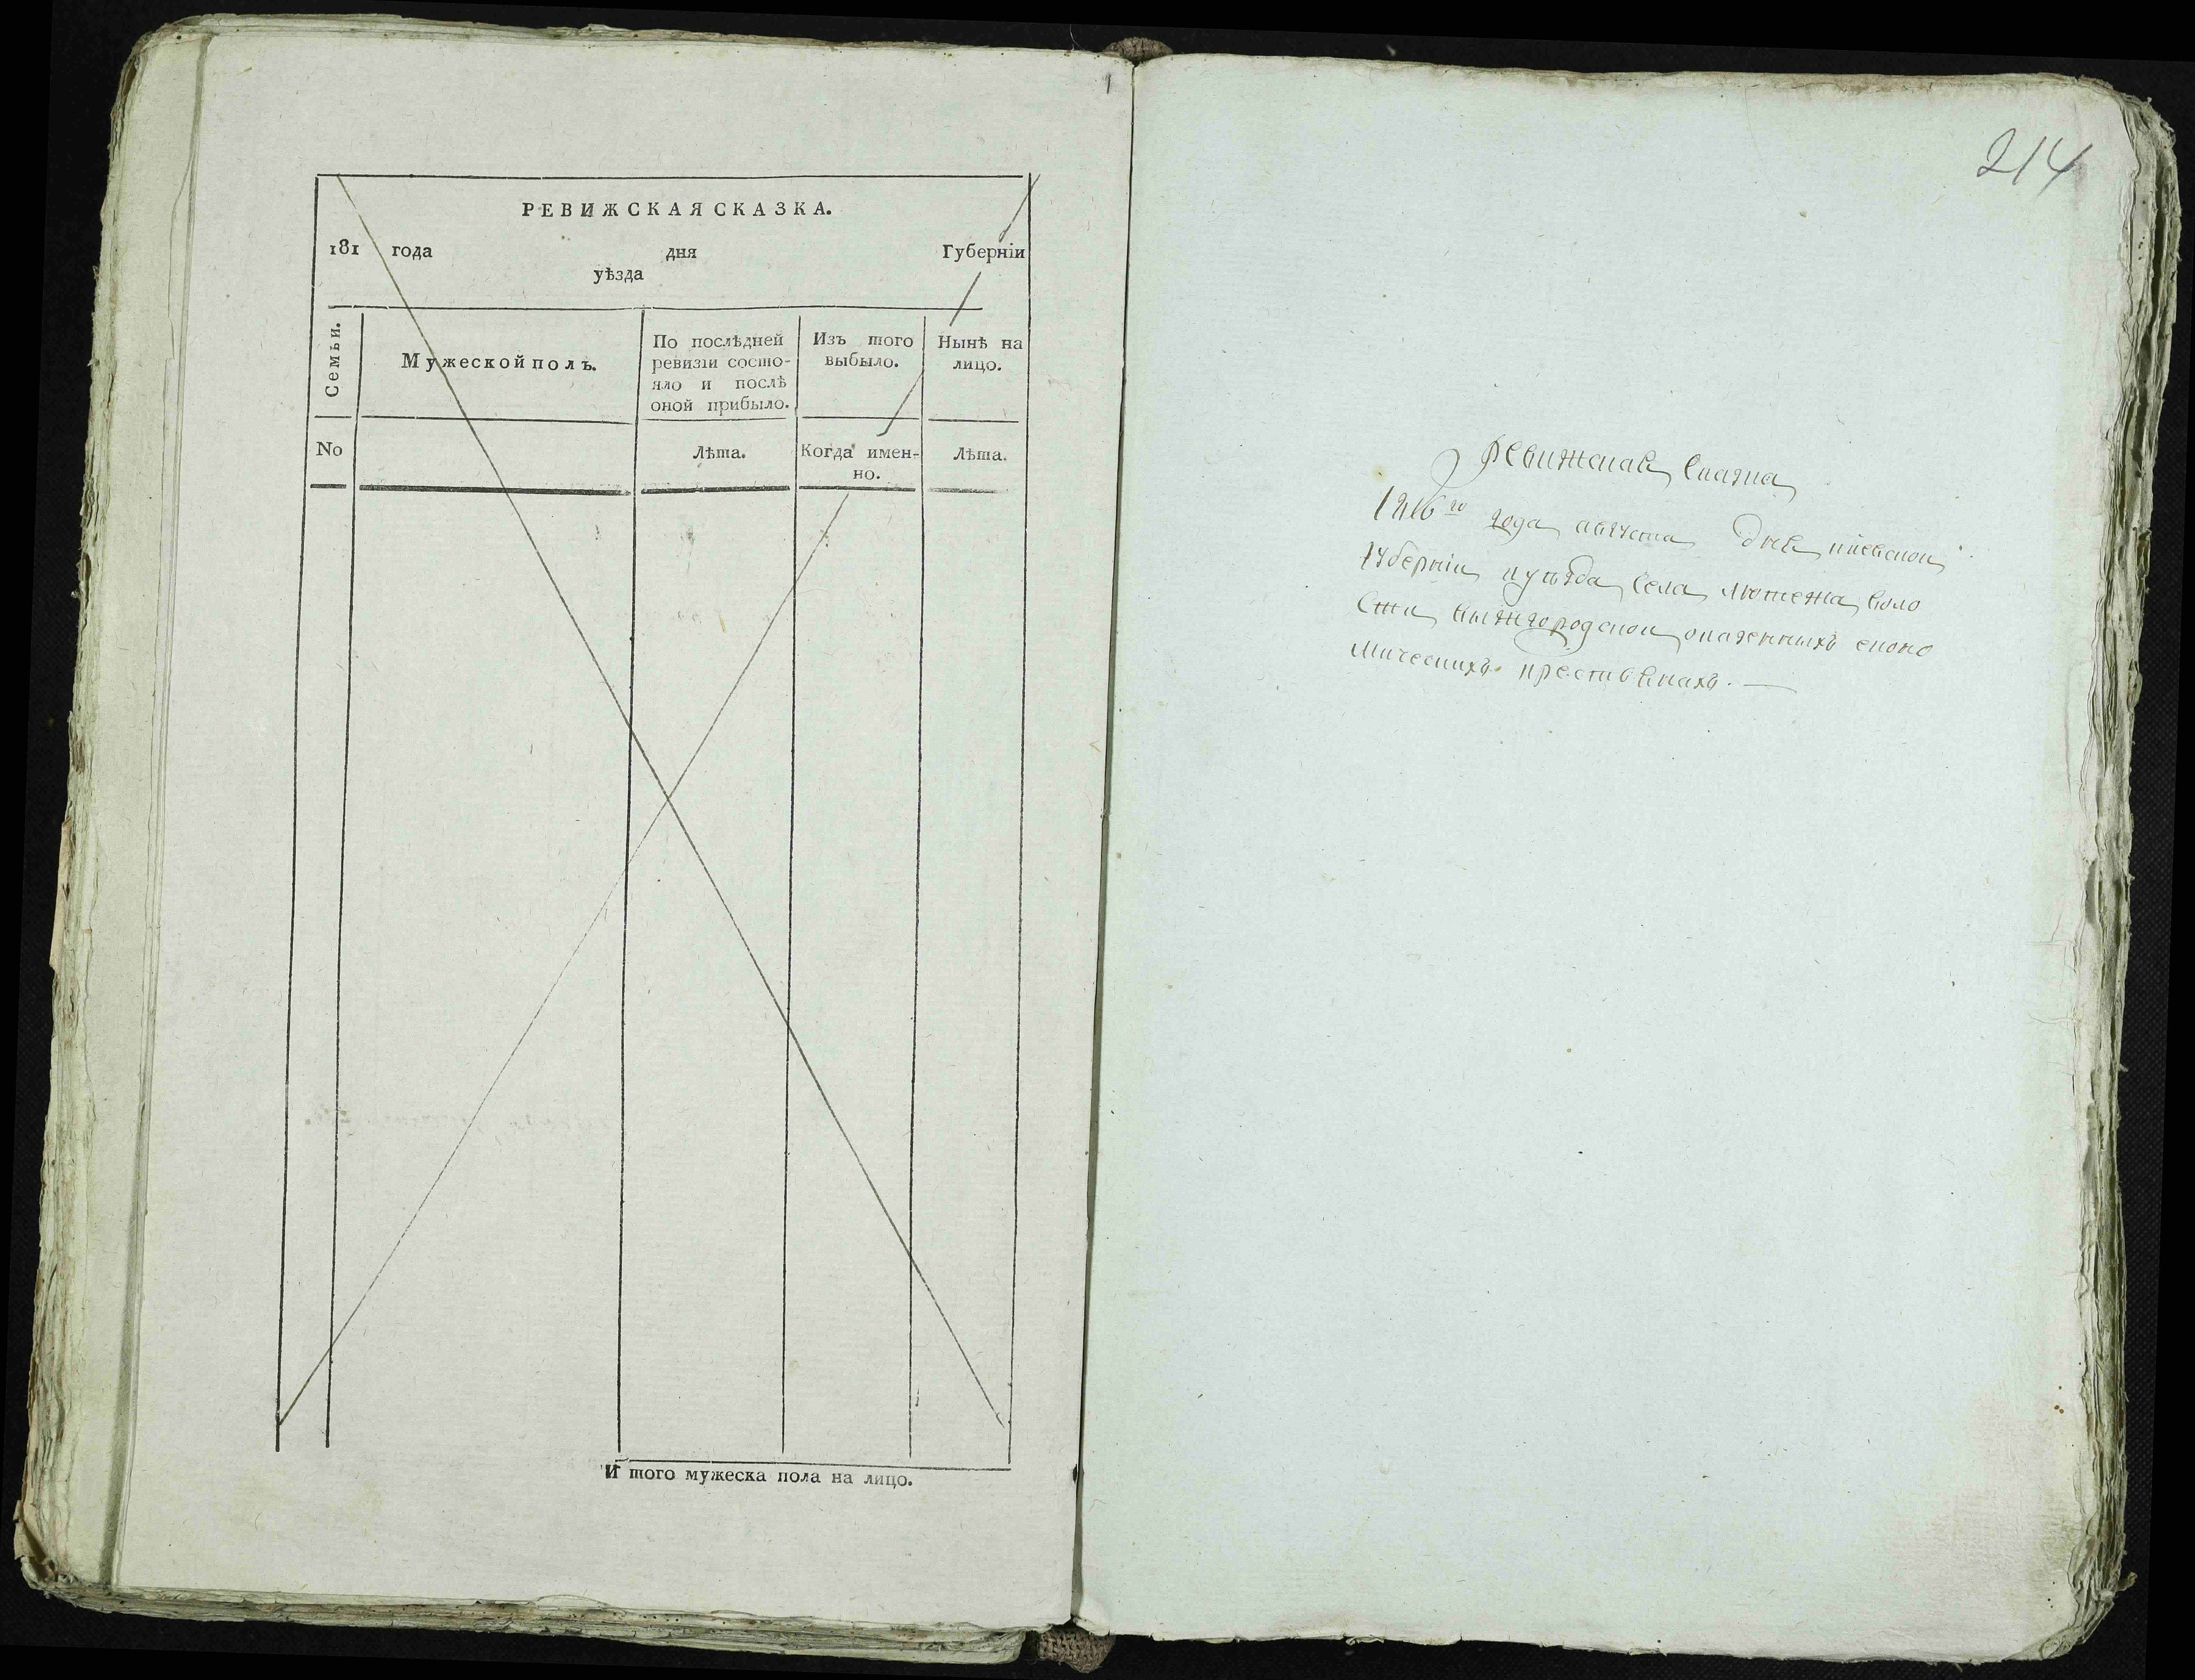 РЕВИЖСКАЯ СКАЗКА.
181 года дня Губерніи
уѣзда
Семьи.
Мужеской полъ.
По послѣдней
ревизіи состо-
яло и послѣ
оной прибыло.
Изъ того
выбыло.
Нынѣ на
лицо.
No
Лѣта.
Когда имен-
но.
Лѣта.
И того мужеска пола на лицо.
214
Ревижская Сказка
1816го года августа дня киевской
губерніи и уѣзда села лютежа воло
сти вышгородской о казенныхъ еконо
мическихъ крестьянахъ. —